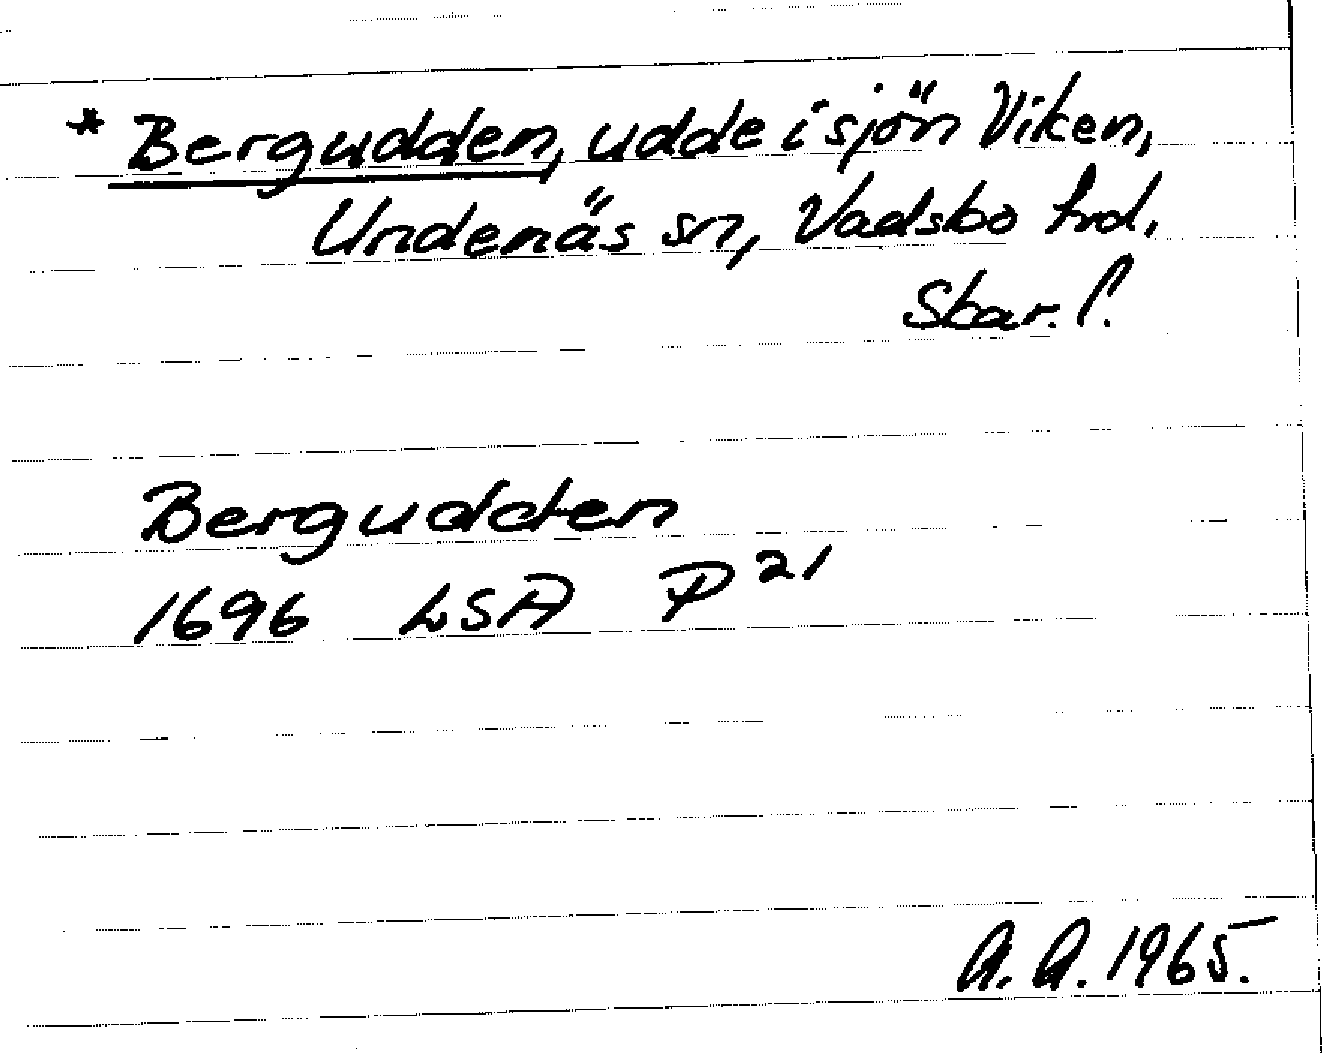 * Bergudden, udde i sjön Viken,
Undenäs sn, Vadsbo hrd,
Skar. l.
Bergudden
1696 LSA P 21
A. A. 1965.